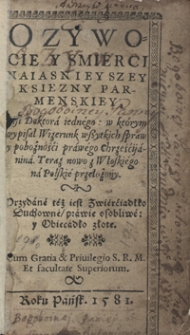 O ZYWO-
CIE Y SMIERCI
NAIASNIEYSZEY
KSIEZNY PAR-
MENSKIEY,
Doktorá iednego: w ktorym
wypisał Wizerunk wszytkich spraw
y pobożności práwego Chrześćijá-
niná. Teraz nowo z Włoskiego
ná Polskie przełożony.
Przydáné też iest Zwierćiádłko
Duchowné/ práwie osobliwé:
y Obiecádło złote.
Cum Gratia & Priuilegio S. R. M.
Et facultate Superiorum.
Roku Pańsk. 1581.